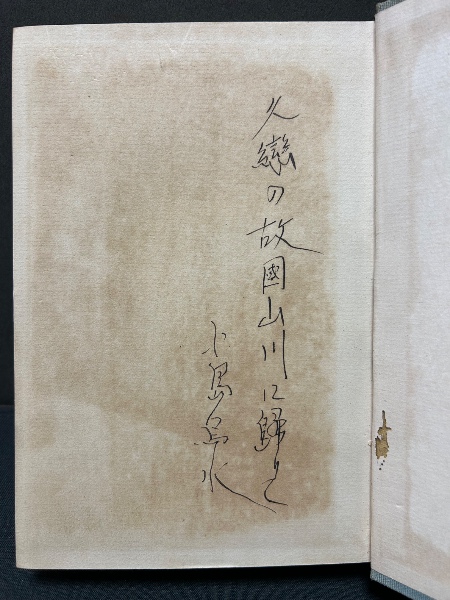 久戀の故國山川に歸りて
小島烏水